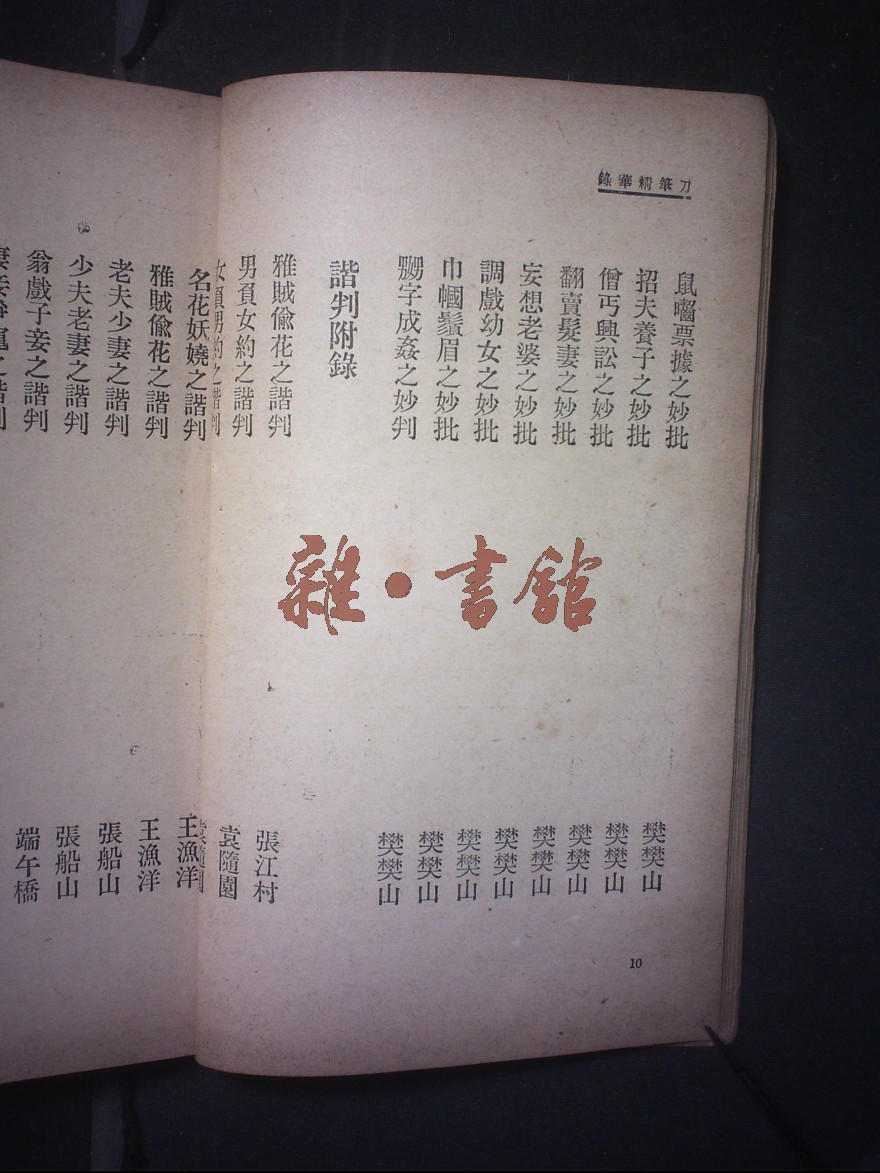 刀筆精華錄
鼠嚙票據之妙批 樊樊山
招夫養子之妙批 樊樊山
僧丐興訟之妙批 樊樊山
翻賣髮妻之妙批 樊樊山
妄想老婆之妙批 樊樊山
調戲幼女之妙批 樊樊山
巾幗鬚眉之妙批 樊樊山
嬲字成姦之妙判 樊樊山
諧判附錄
雅賊偸花之諧判 張江村
男負女約之諧判 袁隨園
女負男約之諧判
名花妖嬈之諧判 王漁洋
雅賊偸花之諧判 王漁洋
老夫少妻之諧判 張船山
少夫老妻之諧判 張船山
翁戲子妾之諧判 端午橋
10
雜•書館